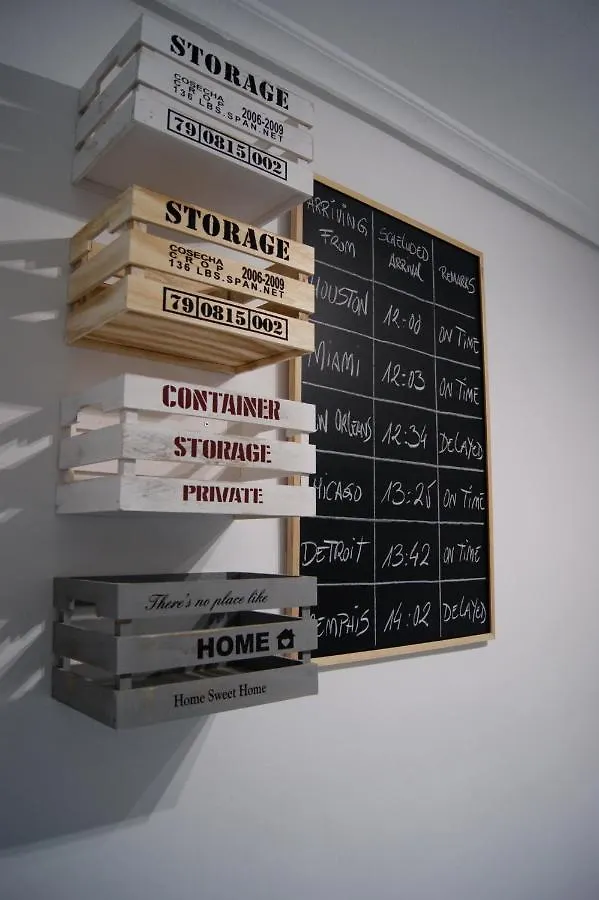 STORAGE
COSECHA
CROP 2006-2009
136 LBS.SPAN.NET
79 0815 002
STORAGE
COSECHA
CROP 2006-2009
136 LBS.SPAN.NET
79 0815 002
CONTAINER
STORAGE
PRIVATE
There's no place like
HOME
Home Sweet Home
ARRIVING FROM SCHEDULED ARRIVAL REMARKS
HOUSTON 12:00 ON TIME
MIAMI 12:03 ON TIME
ORLEANS 12:34 DELAYED
HICAGO 13:25 ON TIME
DETROIT 13:42 ON TIME
EMPHIS 14:02 DELAYED